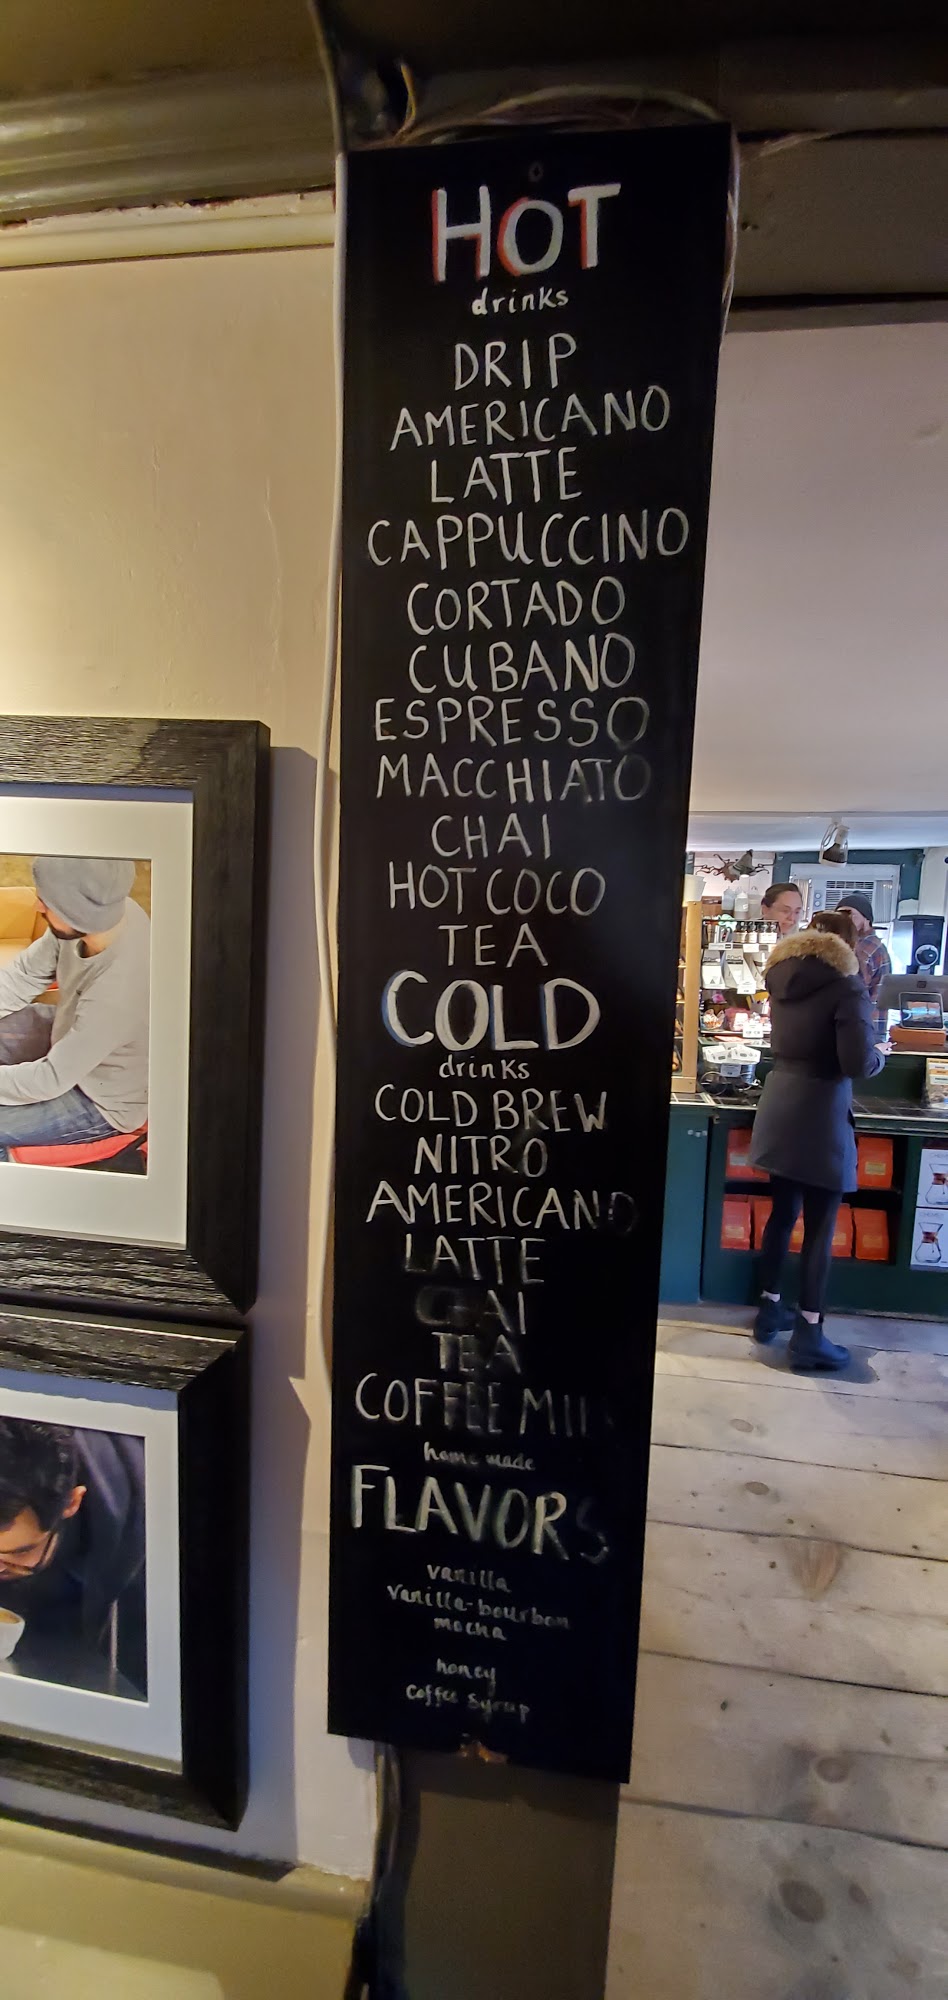 HOT
drinks
DRIP
AMERICANO
LATTE
CAPPUCCINO
CORTADO
CUBANO
ESPRESSO
MACCHIATO
CHAI
HOT COCO
TEA
COLD
drinks
COLD BREW
NITRO
AMERICANO
LATTE
CHAI
TEA
COFFEE MILK
home made
FLAVORS
vanilla
vanilla-bourbon
mocha
honey
coffee syrup